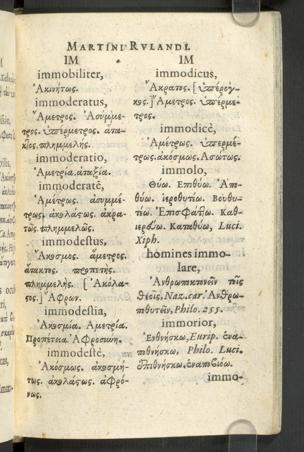 MARTINI RVLANDI.
IM
immobiliter,
Ἀκινήτως.
immoderatus,
Ἄμετρος. Ἀσύμμε-
τρος. ὑπέρμετρος. ἀτα-
κτος. πλημμελής.
immoderatio,
Ἀμετρία. ἀταξία.
immoderatè,
Ἀμέτρως. ἀσυμμέ-
τρως. ἀκολάστως. ἀκρα-
τῶς. πλημμελῶς.
immodestus,
Ἄκοσμος. ἄμετρος.
ἄτακτος. προπετής.
πλημμελής. [Ἀκόλα-
στος.] Ἄφρων.
immodestia,
Ἀκοσμία. Ἀμετρία.
Προπέτεια. Ἀφροσύνη.
immodestè,
Ἀκόσμως. ἀκοσμή-
τως. ἀκολάστως. ἀφρό-
νως.
IM
immodicus,
Ἄκρατος. [ὑπέρογ-
κος.] Ἄμετρος. ὑπέρμε-
τρος.
immodicè,
Ἀμέτρως. ὑπερμέ-
τρως. ἀκόσμως. Ἀσώτως.
immolo,
Θύω. Ἐπιθύω. Ἀπο-
θύω. ἱεροθυτέω. Βουθυ-
τέω. Ἐπισφάζω. Καθ-
ιερόω. Καταθύω, Luci.
Xiph.
homines immo-
lare,
Ἀνθρωποκτονεῖν τοῖς
θεοῖς, Naz. car. Ἀνθρω-
ποθυτεῖν, Philo. 255.
immorior,
Ἐνθνήσκω, Eurip. ἐνα-
ποθνήσκω, Philo. Luci.
ἐναποβιόω.
immo-